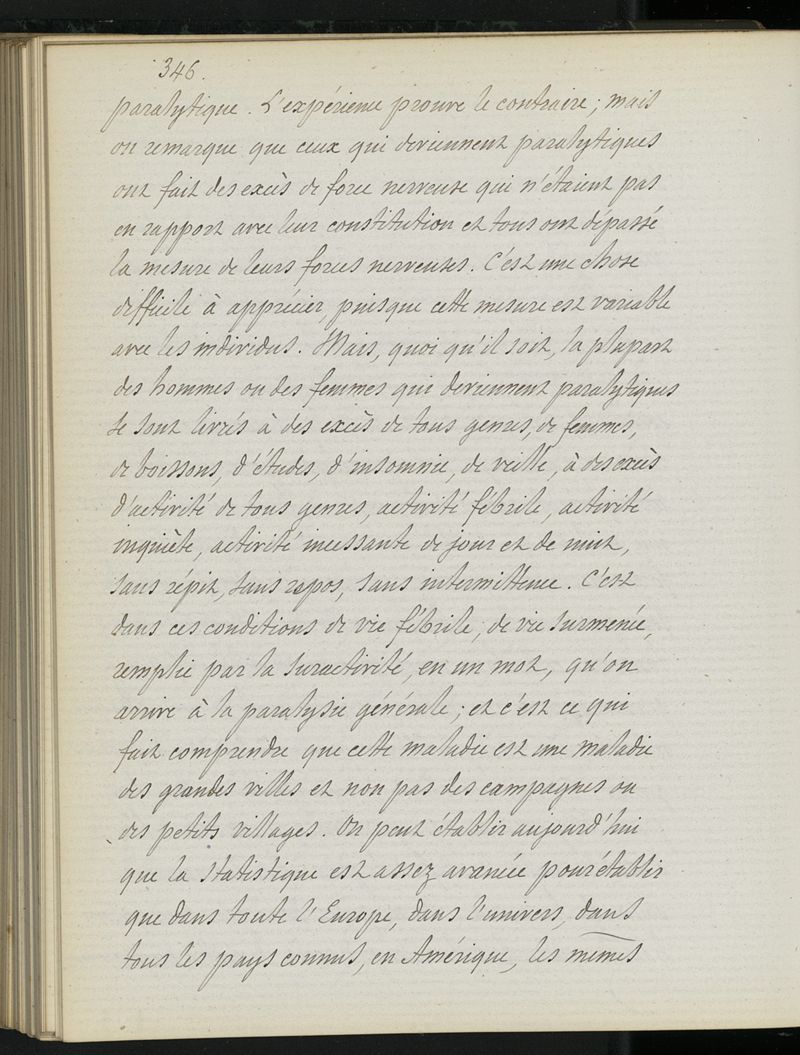 346.
paralytique. L'expérience prouve le contraire; mais
on remarque que ceux qui deviennent paralytiques
ont fait des excès de force nerveuse qui n'étaient pas
en rapport avec leur constitution et tous ont dépassé
la mesure de leurs forces nerveuses. C'est une chose
difficile à apprécier, puisque cette mesure est variable
avec les individus. Mais, quoi qu'il soit, la plupart
des hommes ou des femmes qui deviennent paralytiques
se sont livrés à des excès de tous genres, de femmes,
de boissons, d'études, d'insomnie, de veille, à des excès
d'activité de tous genres, activité fébrile, activité
inquiète, activité incessante de jour et de nuit,
sans répit, sans repos, sans intermittence. C'est
dans ces conditions de vie fébrile, de vie surmenée,
remplie par la suractivité, en un mot, qu'on
arrive à la paralysie générale; et c'est ce qui
fait comprendre que cette maladie est une maladie
des grandes villes et non pas des campagnes ou
des petits villages. On peut établir aujourd'hui
que la statistique est assez avancée pour établir
que dans toute l'Europe, dans l'univers, dans
tous les pays connus, en Amérique, les mêmes